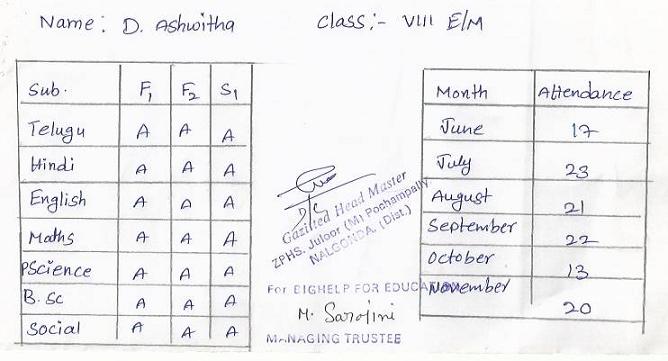 Name: D. Ashwitha Class:- VIII E/M
Sub. F1 F2 S1
Telugu A A A
Hindi A A A
English A A A
Maths A A A
PScience A A A
B.Sc A A A
Social A A A
Gazitted Head Master
ZPHS, Juloor (M) Pochampally
NALGONDA, (Dist.)
For BIGHELP FOR EDUCATION
M. Sarojini
MANAGING TRUSTEE
Month Attendance
June 17
July 23
August 21
September 22
October 13
November 20